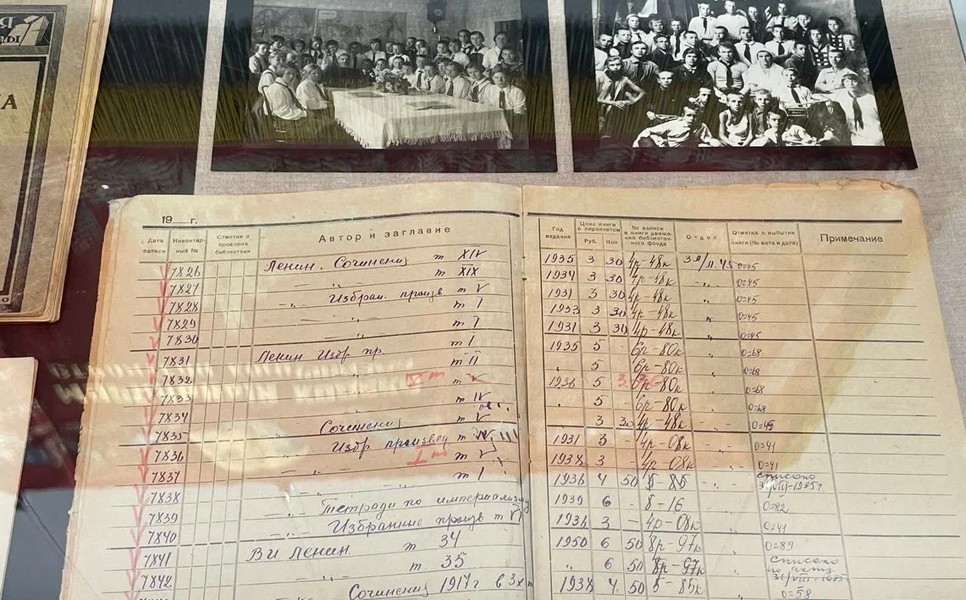 19 г.
Дата записи
Инвентарный №
Отметки о проверке библиотеки
Автор и заглавие
Год издания
Цена книги в переплете
Руб. Коп.
№ записи в книге движения библиотечного фонда
Отдел
Отметка о выбытии книги (№ акта и дата)
Примечание
7826 Ленин. Сочинения т XIV 1935 3 30 4р-48к 0=45
7827 т XIX 1934 3 30 4р-48к 0=45
7828 -"- Избран. произв т V 1931 3 30 4р-48к 0=45
7829 т I 1933 3 30 4р-48к 0=45
7830 т I 1931 3 30 4р-48к 0=45
7831 Ленин Избр пр т I 1935 5 - 6р-80к 0=68
7832 т II " 5 6р-80к 0=68
7833 т V 1936 5 6р-80к 0=68
7834 т IV " 5 - 6р-80к 0=68
7835 Сочинения т V 3 30 4р-48к 0=45
7836 Избр произвед 1931 3 - 4р-08к 0=41
7837 т V 1938 3 4р-08к 0=41
7838 т I 1936 4 50 5-85 списано
7839 Тетради по империализму 1939 6 - 8-16 0=82
7840 Избранные произв т VI 1936 3 - 4р-08к 0=41
7841 В И Ленин т 34 1950 6 50 8р-97к 0=89
7842 т 35 " 6 50 8р-97к списано по акту
Сочинения 1917г в 3х т 1938 4 50 5-85к 0=58